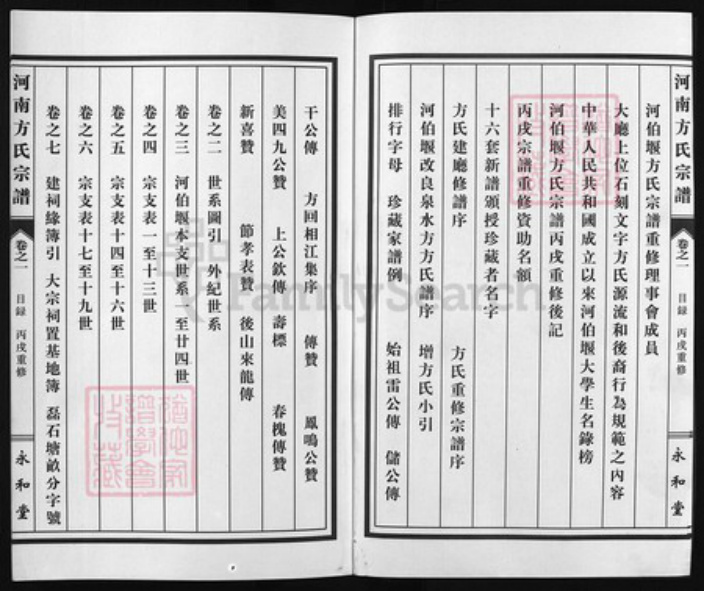 河南方氏宗譜
卷之一
目録
丙戌重修
永和堂
河伯堰方氏宗譜重修理事會成員
大廳上位石刻文字方氏源流和後裔行為規範之內容
中華人民共和國成立以來河伯堰大學生名錄榜
河伯堰方氏宗譜丙戌重修後記
丙戌宗譜重修資助名額
十六套新譜頒授珍藏者名字
方氏建廳修譜序 方氏重修宗譜序
河伯堰改良泉水方方氏譜序 增方氏小引
排行字母 珍藏家譜例 始祖雷公傳 儲公傳
干公傳 方回相江集序 傳贊 鳳鳴公贊
美四九公贊 上公欽傳 壽標 春槐傳贊
新喜贊 節孝表贊 後山來龍傳
卷之二 世系圖引 外紀世系
卷之三 河伯堰本支世系一至廿四世
卷之四 宗支表一至十三世
卷之五 宗支表十四至十六世
卷之六 宗支表十七至十九世
卷之七 建祠緣簿引 大宗祠置基地簿 磊石塘畝分字號
河南方氏宗譜
卷之一
目録
丙戌重修
永和堂
FamilySearch